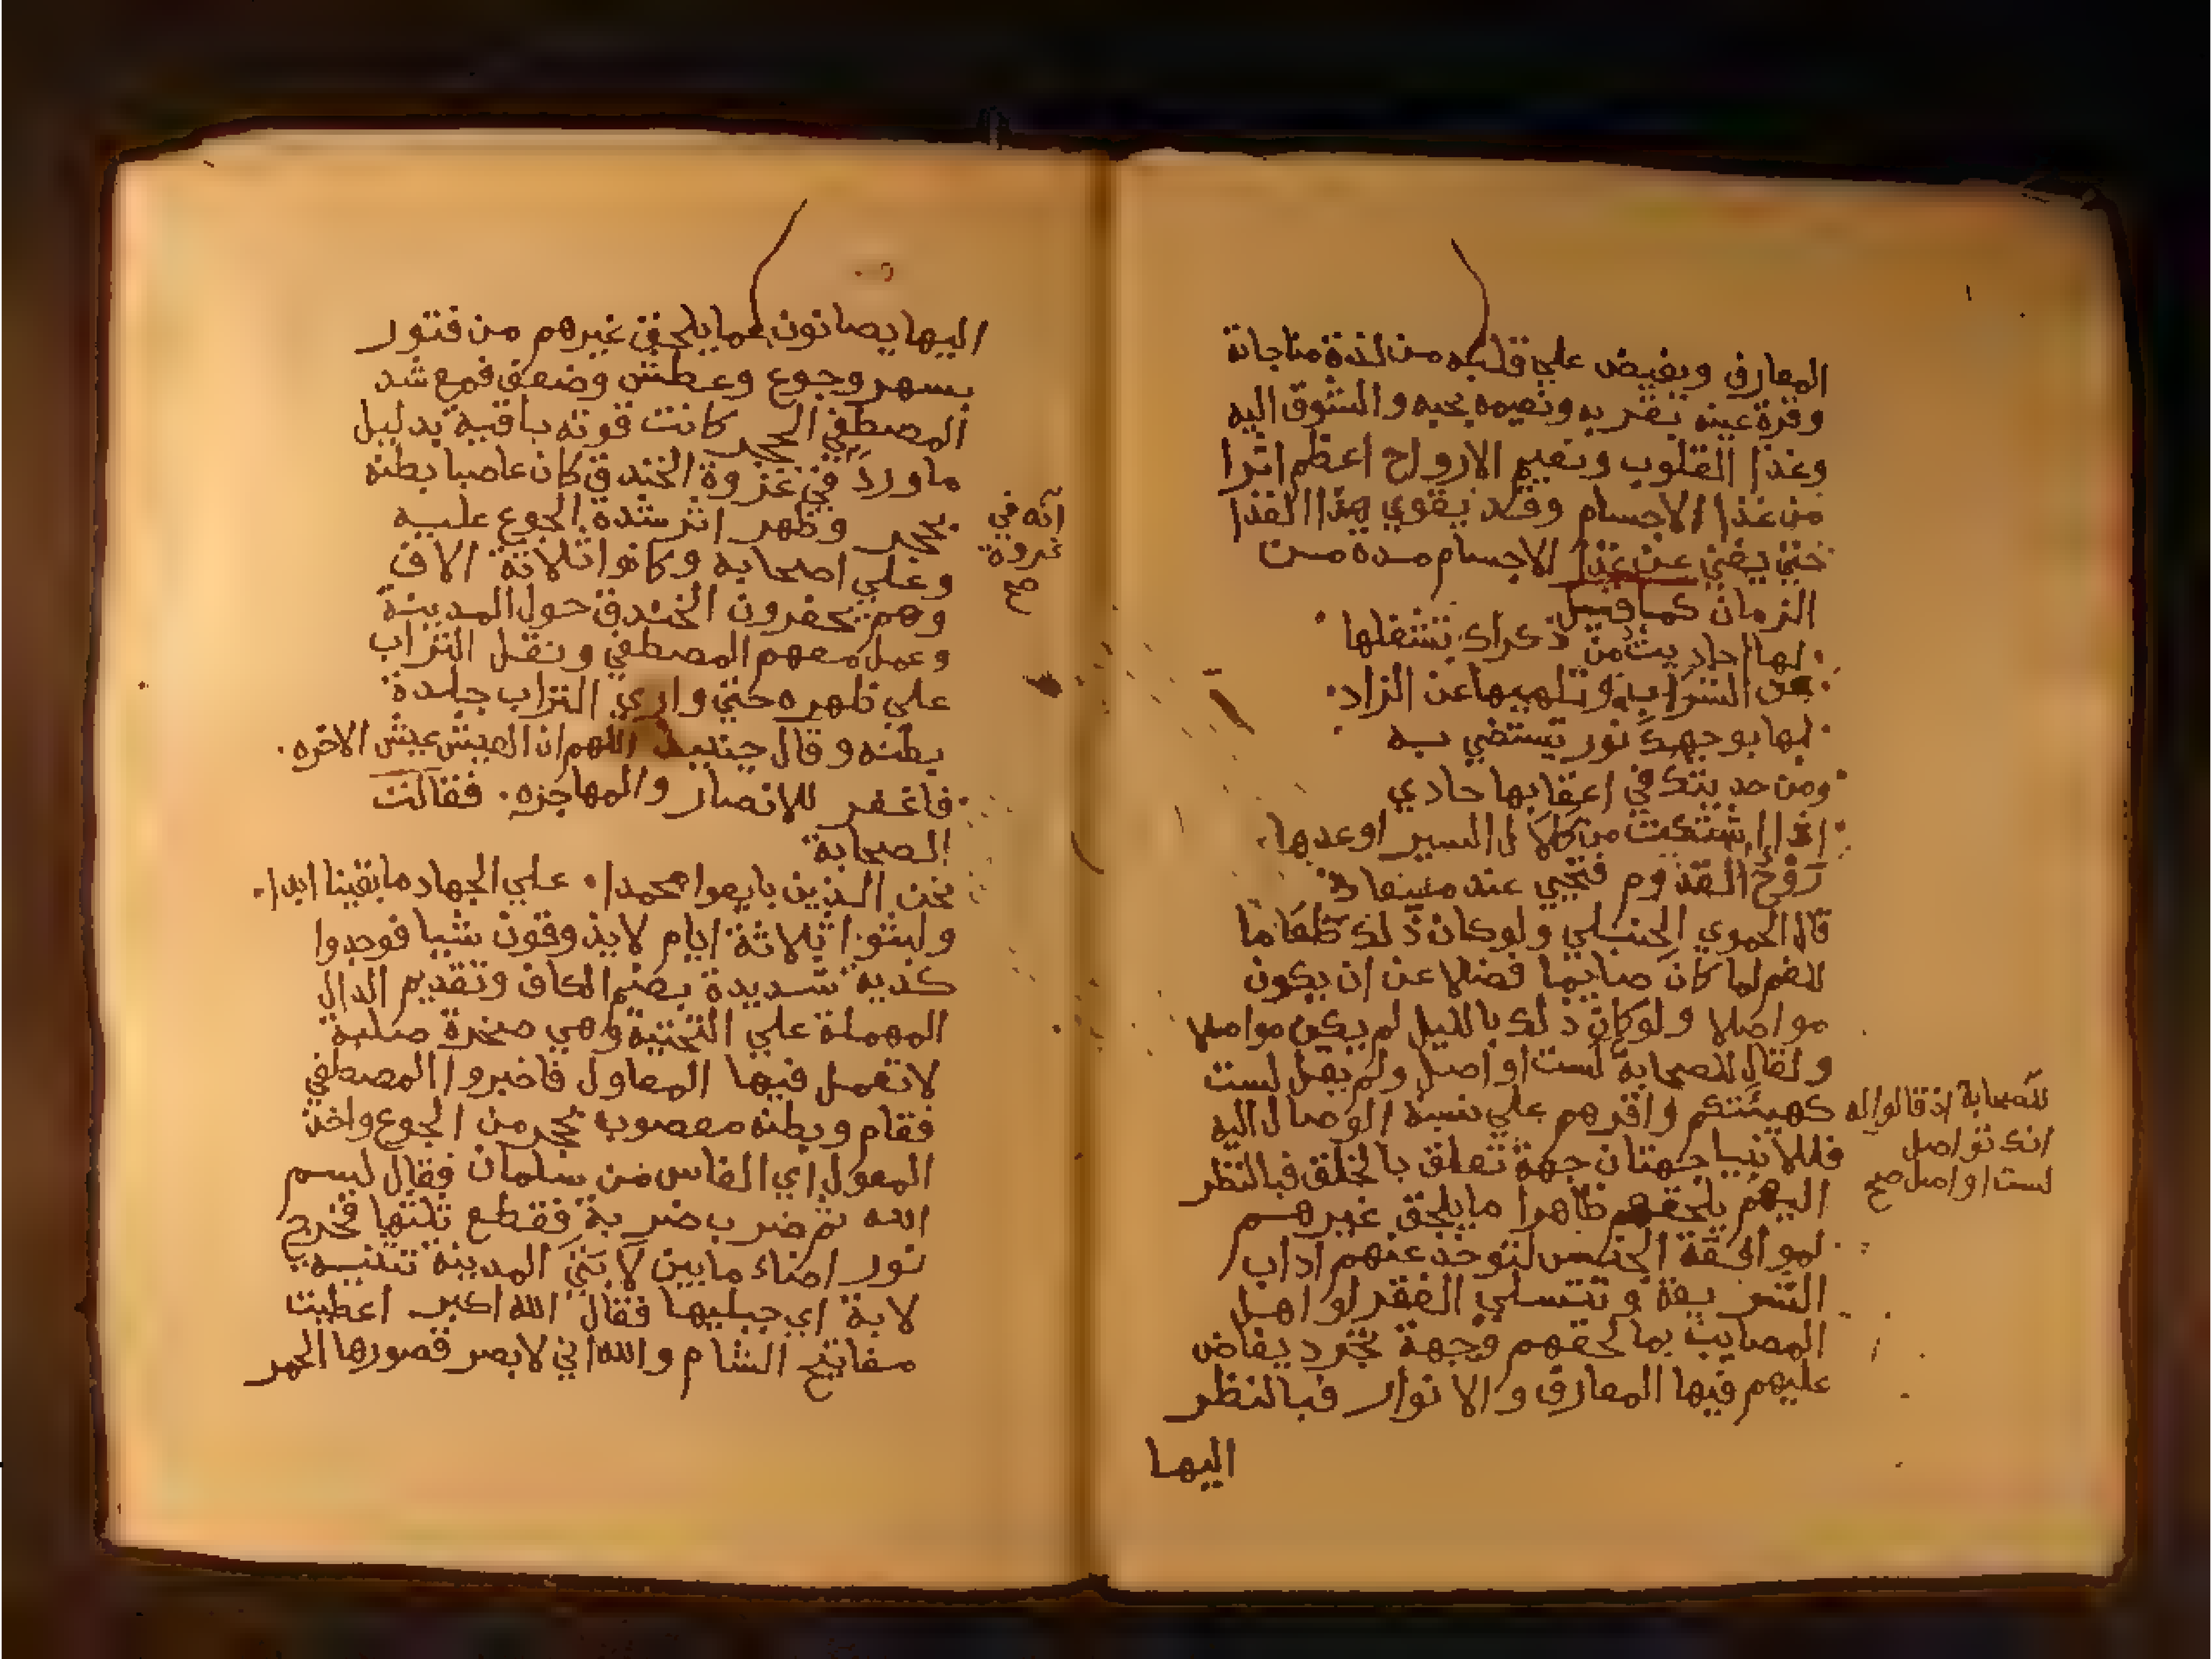 المعارف ويفيض علي قلبه من لذة مناجاته
وقرة عينه بقربه ونعيمه بحبه والشوق اليه
وغذا القلوب ونعيم الارواح اعظم اثرا
من غذا الاجسام وقد يقوي هذا الغذا
حتي يغني عن غذا الاجسام مدة من
الزمان كما قيل
لها احاديث من ذكراك تشغلها
عن الشراب وتلهيها عن الزاد
لها بوجهك نور تستضي به
ومن حديثك في اعقابها حادي
اذا اشتكت من كلال السير اوعدها
روح القدوم فتحيي عند ميعاد
قال الحموي الحنبلي ولو كان ذلك طعاما
للفم لما كان صايما فضلا عن ان يكون
مواصلا ولو كان ذلك بالليل لم يكن مواصلا
ولقال للصحابة لست اواصل ولم يقل لست
كهيئتكم واقرهم علي نسبة الوصال اليه
للصحابة اذ قالوا له
انك تواصل
لست اواصل صح
فللانبيا جهتان جهة تعلق بالخلق فبالنظر
اليهم يلحقهم ظاهرا ما يلحق غيرهم
لموافقة الجنس لتوخذ عنهم اداب
الشريعة وتتسلي الفقرا واهل
المصايب بما لحقهم وجهة تجرد يفاض
عليهم فيها المعارف والانوار فبالنظر
اليها
اليها يصانون عما يلحق غيرهم من فتور
بسهر وجوع وعطش وضعف فمع شد
المصطفي الحجر كانت قوته باقية بدليل
ما ورد في غزوة الخندق كان عاصبا بطنه
انه في
غزوة
صح
بحجر وظهر اثر شدة الجوع عليه
وعلي اصحابه وكانوا ثلاثة الاف
وهم يحفرون الخندق حول المدينة
وعمل معهم المصطفي ونقل التراب
علي ظهره حتي واري التراب جلدة
بطنه وقال حينيد اللهم ان العيش عيش الاخره
فاغفر للانصار والمهاجره فقالت
الصحابة
نحن الذين بايعوا محمدا علي الجهاد ما بقينا ابدا
ولبثوا ثلاثة ايام لا يذوقون شيا فوجدوا
كدية شديدة بضم الكاف وتقديم الدال
المهملة علي التحتية وهي صخرة صلبة
لا تعمل فيها المعاول فاخبروا المصطفي
فقام وبطنه معصوب بحجر من الجوع واخذ
المعول اي الفاس من سلمان فقال بسم
الله ثم ضرب ضربة فقطع ثلثها فخرج
نور اضاء ما بين لابتي المدينة تثنية
لابة اي جبليها فقال الله اكبر اعطيت
مفاتيح الشام والله اني لابصر قصورها الحمر